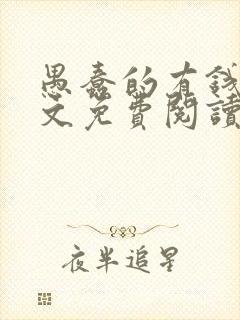 愚蠢的有錢
文免費閱讀
夜半追星